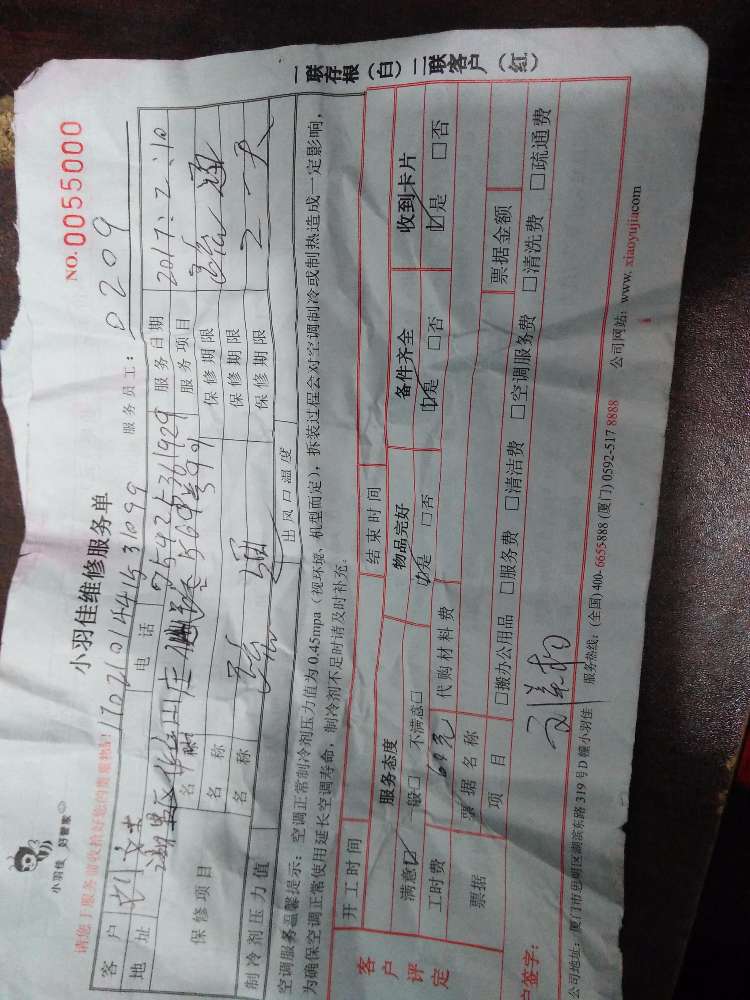 小羽佳 好管家
小羽佳维修服务单
NO. 0055000
请您于服务前收拾好您的贵重物品!
服务员工: 0209
客户
电话
服务日期 2017.2.10
地址
服务项目
保修项目
名称
保修期限
名称
保修期限
名称
保修期限
制冷剂压力值
出风口温度
空调服务温馨提示:空调正常制冷剂压力值为0.45mpa(视环境、机型而定),拆装过程会对空调制冷或制热造成一定影响,
为确保空调正常使用延长空调寿命,制冷剂不足时请及时补充。
一联存根(白)二联客户(红)
客户评定
开工时间
结束时间
服务态度
物品完好
备件齐全
收到卡片
满意☑ 一般□ 不满意□
☑是 □否
☑是 □否
☑是 □否
工时费 60元
代购材料费
票据
票据名称
票据金额
项目
□搬办公用品 □服务费 □清洁费 □空调服务费 □清洗费 □疏通费
户签字:
公司地址:厦门市思明区湖滨东路319号D幢小羽佳 服务热线:(全国)400-6655-888 (厦门)0592-517 8888 公司网站:www.xiaoyujia.com